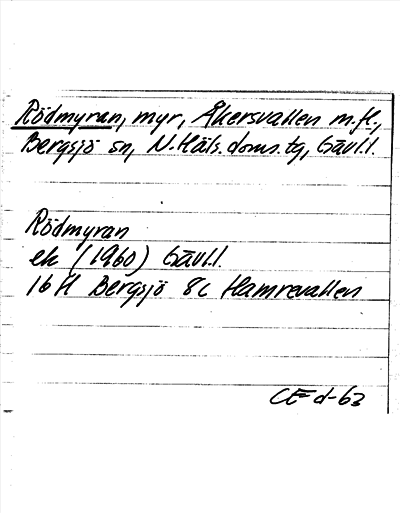 Rödmyran, myr, Åkersvallen m.fl.,
Bergsjö sn, N. Häls. doms. tg, Gävl.l.
Rödmyran
ek (1960) Gävl.l.
16 H Bergsjö 8c Hamrevallen
CE d-63